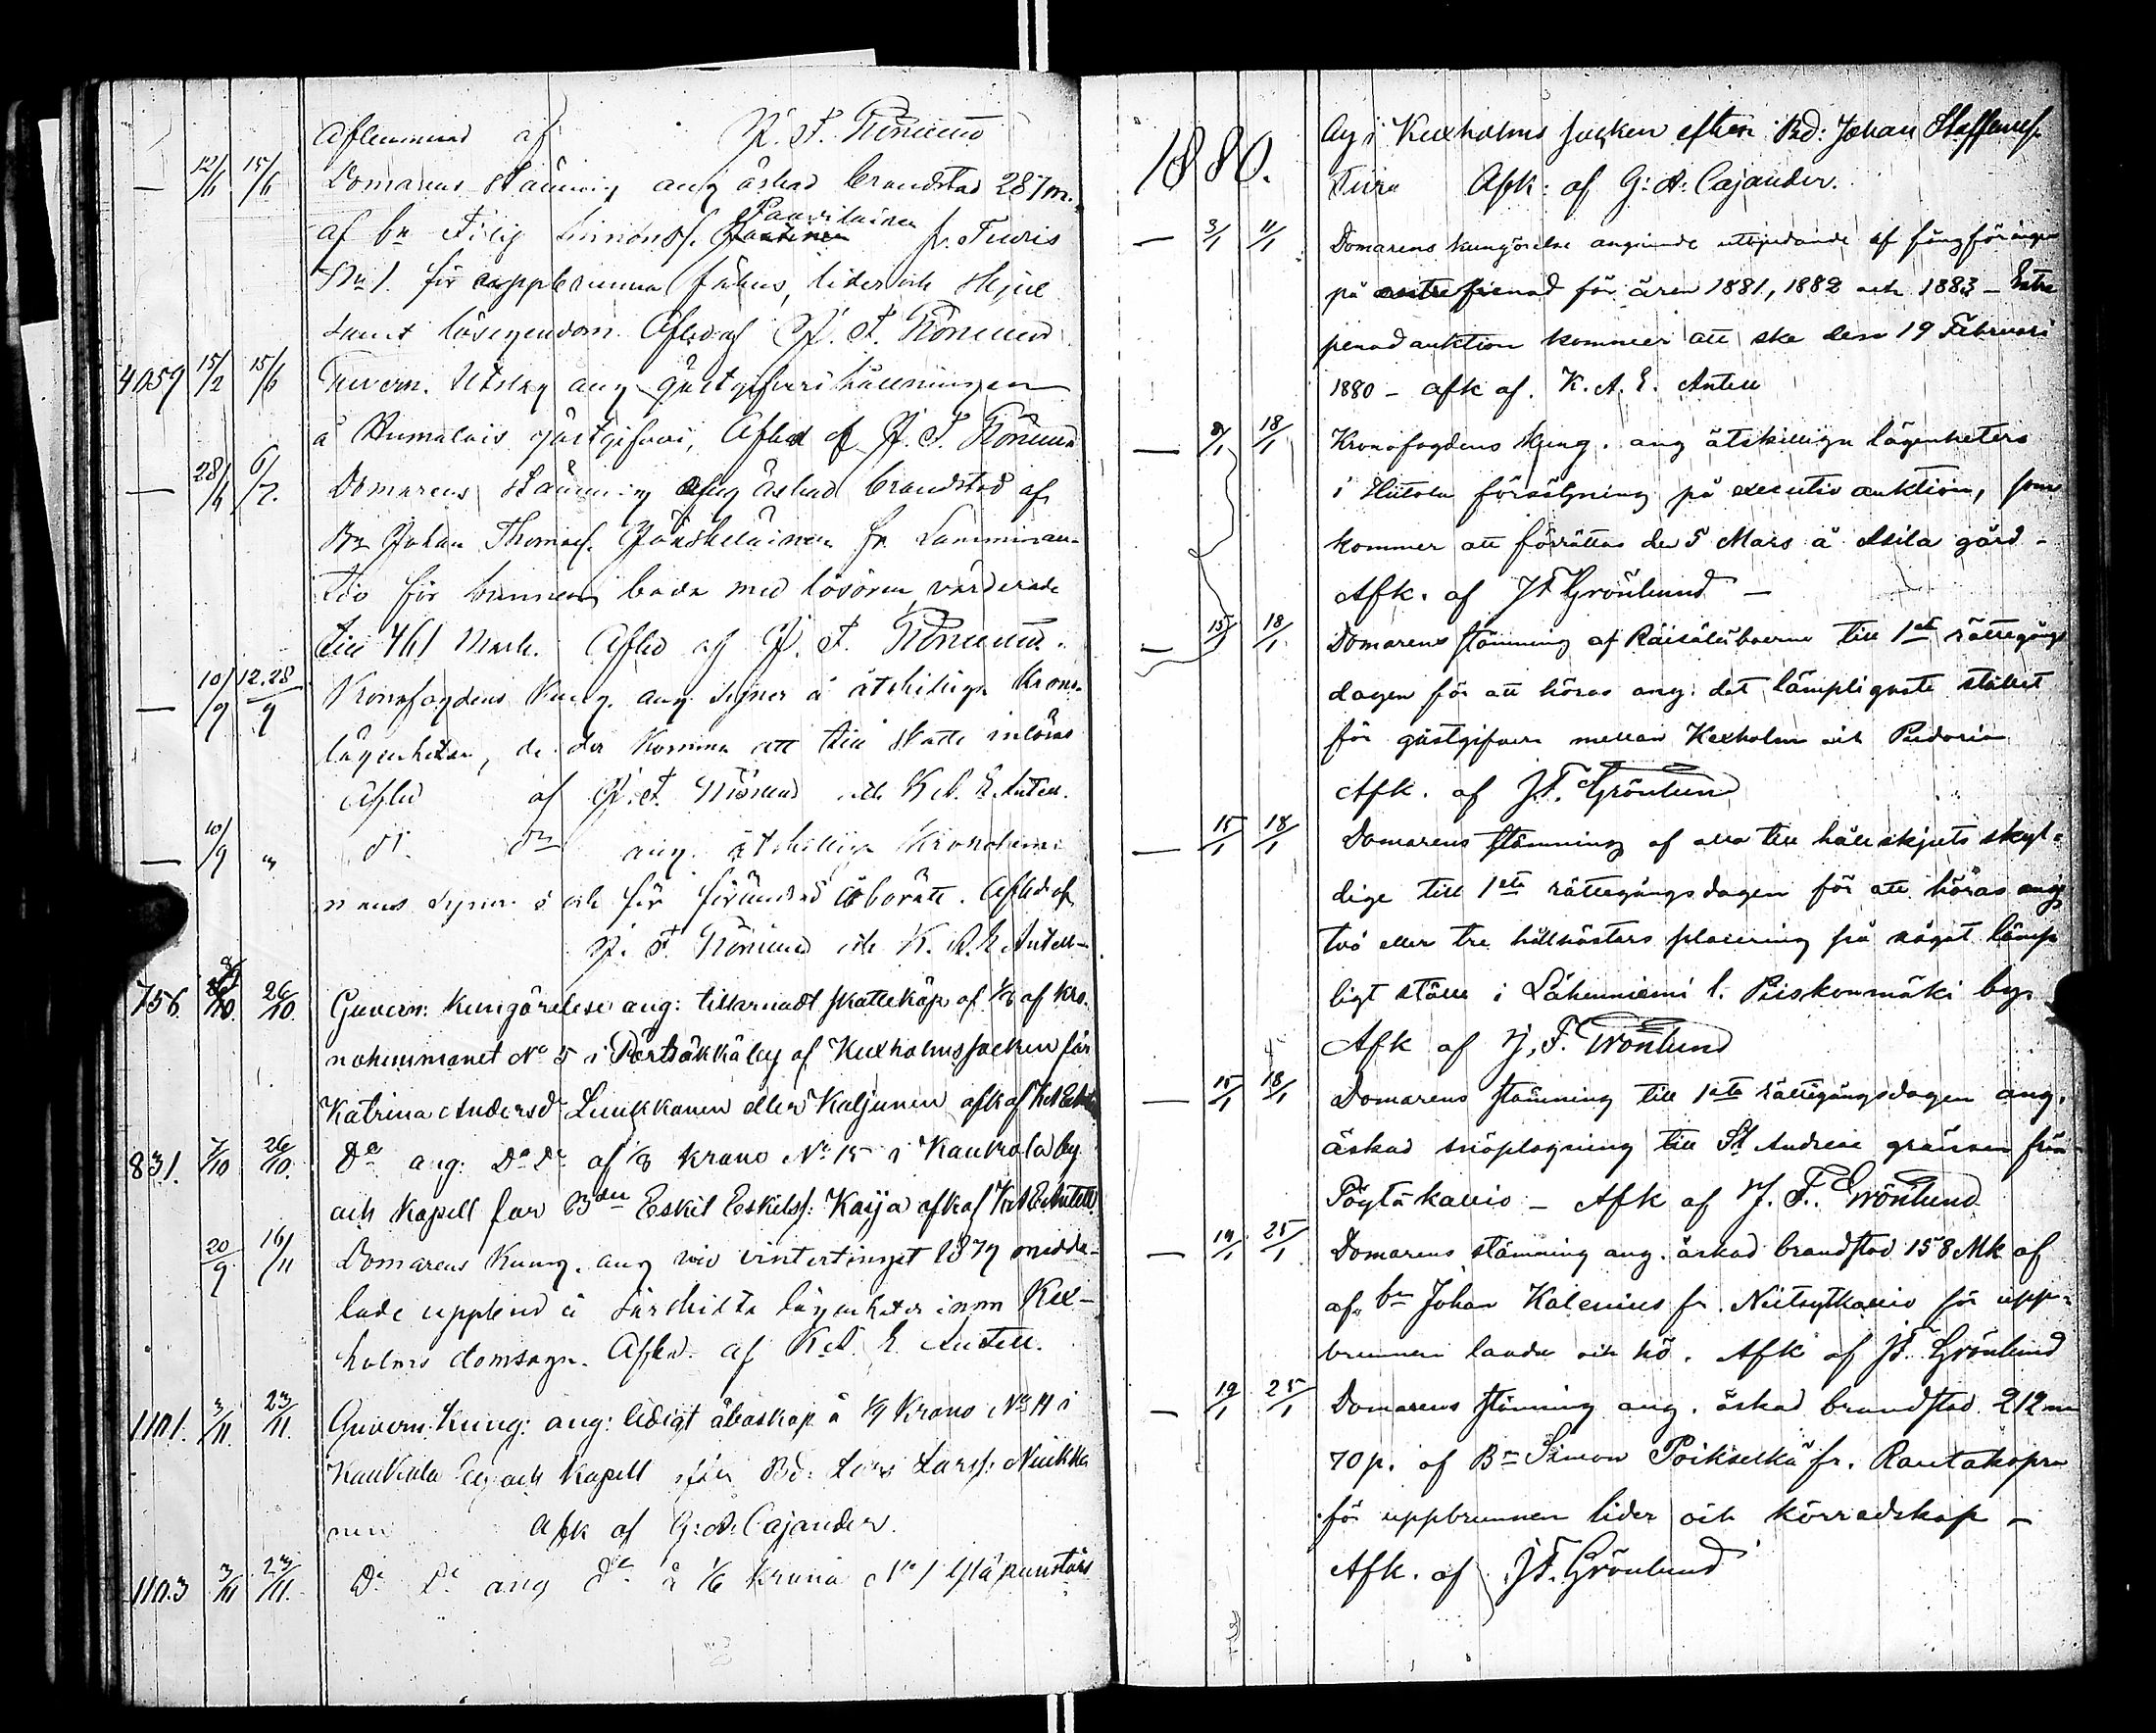 Aflemnad af J. F. Grönlund
— 12/6 15/6 Domarens Stämning ang äskad brandstod 287 m.
af bn Filip Simonss. Paavilainen fr. Tiuris
No 1. för uppbrunna fähus, lider och skjul
samt lösegendom. Aflad af J. F. Grönlund
4059 15/2 15/6 Guvern. Utslag ang gästgifverihållningen
å Humalais gästgifveri, Aflad af J. F. Grönlund
— 28/6 6/7. Domarens Stämning ang äskad brandstod af
Bn Johan Thomass. Jääskeläinen fr.
för brunnen bada med lösören värderade
till 461 Mark. Aflad af J. F. Grönlund.
— 10/9 12.28/9 Kronofogdens Kung. ang syner å åtskilliga Krono
lägenheter, de der komma att till skatte inlösas
Aflad af J. F. Grönlund och K. A. E. Antell.
— 10/9 " do do ang. åtskilliga Kronohem
mans syner å och för förändrad åborätt. Aflad af
J. F. Grönlund och K. A. E. Antell —
756. /10. 26/10. Guvern: kungörelse ang: tillernadt skatteköp af 1/8 af kro-
nohemmanet No 5 i Pörtsäkkä by af Kexholms socken för
Katrina Andersd. Luukkanen eller Kaljunen afk af K A E Antell
831. 7/10 26/10. Do ang: Do Do af 1/8 krono No 15 i Kaukola by
och kapell for Bden Eskil Eskilss: Kaija afk af K A E Antell
20/9 16/11 Domarens Kung. ang vid vintertinget 1879 medde-
lade uppbud å särskilta lägenheter inom Kex-
holms domsaga. Aflad. af K. A. E. Antell.
1101. 3/11. 23/11. Guvern. kung: ang: ledigt åboskap å 1/9 Krono No 11 i
Kaukola by och kapell efter Bd: Lars Larss: Nuikka
nen Afk af G: A: Cajander.
1103 3/11 23/11. Do Do ang do å 1/6 krono No 1
1880.
by i Kexholms socken efter Bd: Johan Staffanss.
Tiira Afk: af G: A: Cajander.
— 3/1 11/1 Domarens kungörelse angående utbjudande af fångföringen
på entreprenad för åren 1881, 1882 och 1883 – Entre
penad auktion kommer att ske den 19 Februari
1880 – afk af. K. A. E. Antell
— 9/1 18/1 Kronofogdens kung. ang åtskilliga lägenheters
i Hiitola försäljning på executiv auktion, som
kommer att förrättas den 5 Mars å Asila gård –
Afk. af J F Grönlund —
— 15/1 18/1 Domarens stämning af Räisäläboerne till 1sta rättegångs
dagen för att höras ang: det lämpligaste stället
för gästgifveri mellan Kexholm och Pudoria
Afk. af J. F. Grönlund
— 15/1 18/1 Domarens stämning af alla till hållskjuts skyl-
dige till 1sta rättegångsdagen för att höras ang
två eller tre hållhästars placering på något lämp
ligt ställe i Lähenniemi l. Piiskonmäki byar
Afk af J. F. Grönlund
— 15/1 18/1 Domarens stämning till 1sta rättegångsdagen ang.
äskad snöplogning till St Andreæ gränsen från
Pöytäkallio – Afk af J. F. Grönlund
— 19/1 25/1 Domarens stämning ang. äskad brandstod 158 Mk af
af bn Johan Kalenius fr. Niitsytkallio för upp-
brunnen lauda och hö. Afk af J F. Grönlund
— 19/1 25/1 Domarens stämning ang. äskad brandstod 212 m
70 p. af Bn Simon Poikselkä fr. Rautakopra
för uppbrunnen lider och körredskap –
Afk. af J F. Grönlund